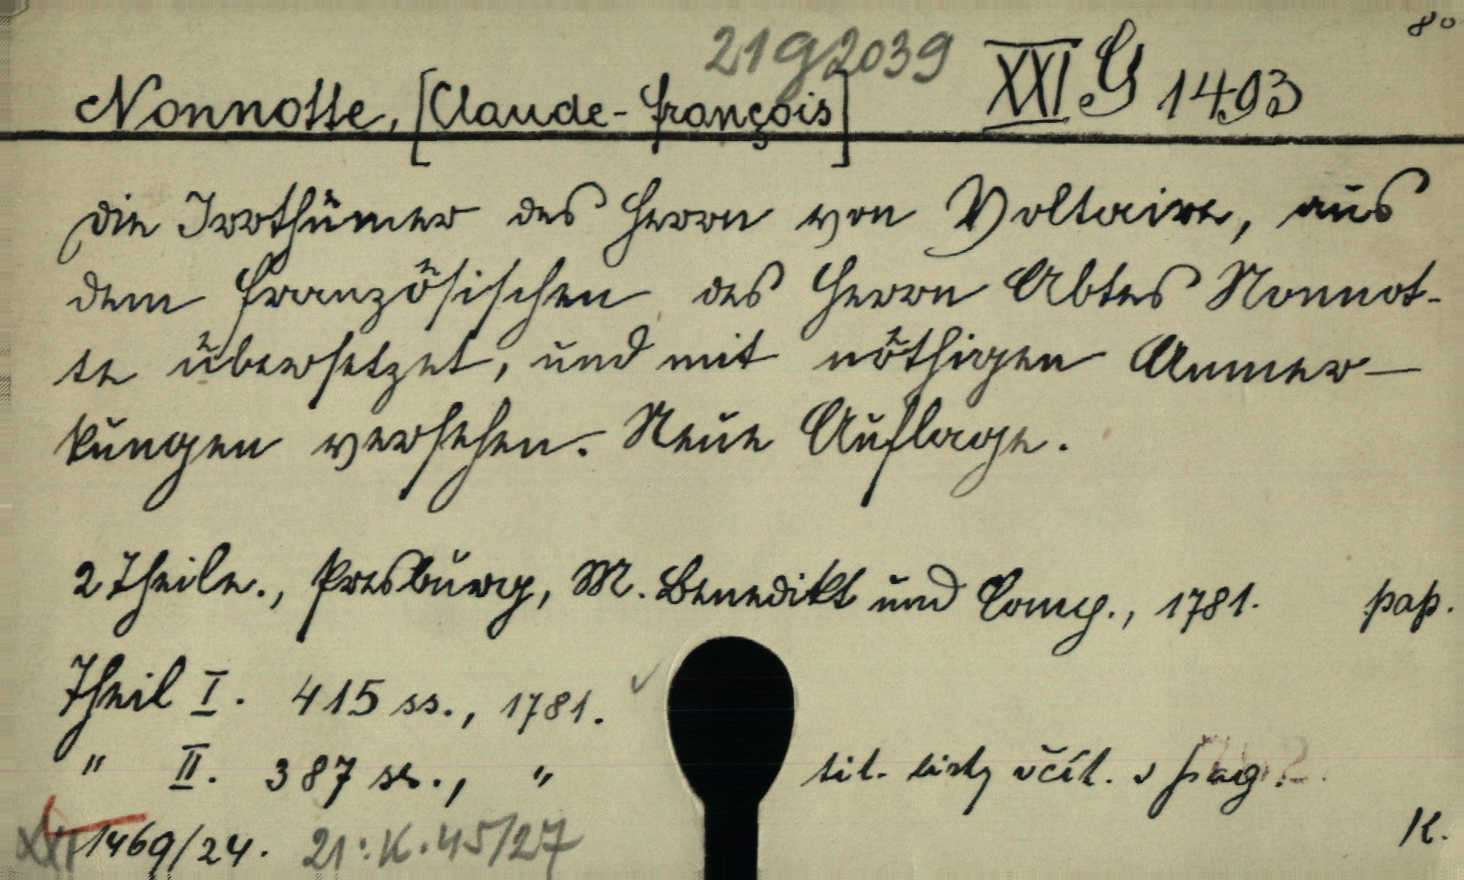 8°
21 g 2039
XXI. G 1493
Nonnotte, [Claude-François]
Die Irrthümer des Herrn von Voltaire, aus
dem Französischen des Herrn Abtes Nonnot-
te übersetzet, und mit nöthigen Anmer-
kungen versehen. Neue Auflage.
2 Theile., Presburg, M. Benedikt und Comp., 1781. pap.
Theil I. 415 ss., 1781.
" II. 387 ss., " tit. listy včít. v pag.
K.
XXI 1469/24. 21: K. 45/27